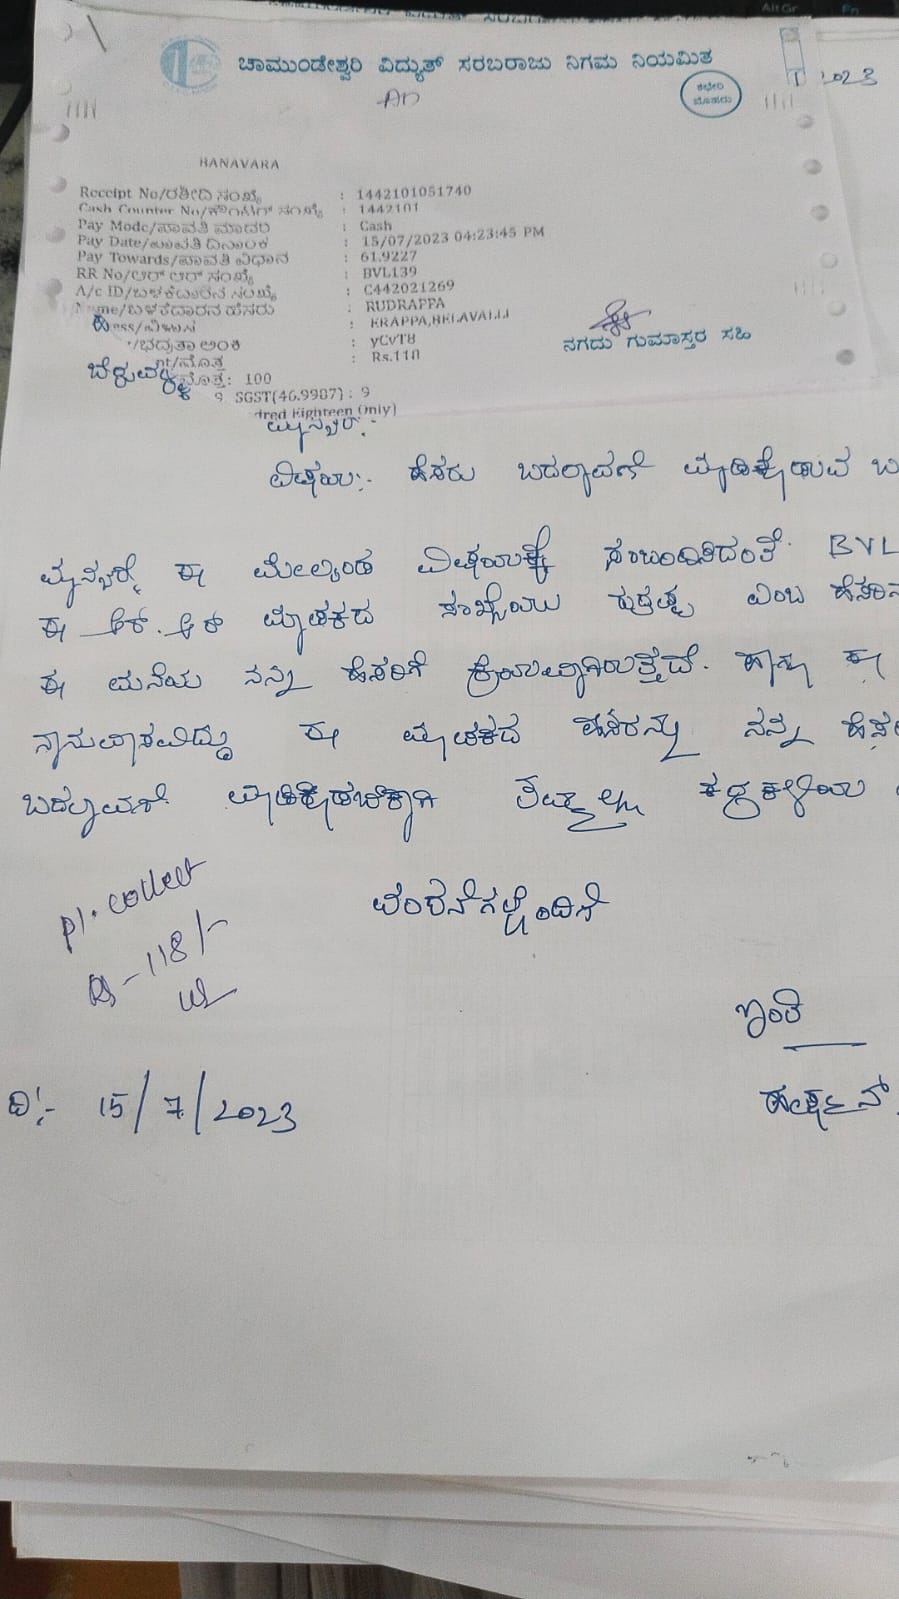 ಚಾಮುಂಡೇಶ್ವರಿ ವಿದ್ಯುತ್ ಸರಬರಾಜು ನಿಗಮ ನಿಯಮಿತ
2023
ಕಛೇರಿ
ಮೊಹರು
BANAVARA
Receipt No/ರಶೀದಿ ಸಂಖ್ಯೆ : 1442101051740
Cash Counter No/ಕೌಂಟರ್ ಸಂಖ್ಯೆ : 1442101
Pay Mode/ಪಾವತಿ ಮಾದರಿ : Cash
Pay Date/ಪಾವತಿ ದಿನಾಂಕ : 15/07/2023 04:23:45 PM
Pay Towards/ಪಾವತಿ ವಿಧಾನ : 61.9227
RR No/ಆರ್ ಆರ್ ಸಂಖ್ಯೆ : BVL139
A/c ID/ಬಳಕೆದಾರನ ಸಂಖ್ಯೆ : C442021269
Name/ಬಳಕೆದಾರನ ಹೆಸರು : RUDRAPPA
ess/ವಿಳಾಸ : ERAPPA,BELAVALLI
/ಭದ್ರತಾ ಅಂಕಿ : yCvT8
nt/ಮೊತ್ತ : Rs.118
ಮೊತ್ತ: 100
9 SGST(46.9987) : 9
dred Eighteen Only)
ನಗದು ಗುಮಾಸ್ತರ ಸಹಿ
ಮಾನ್ಯರೆ,-
ವಿಷಯ:- ಹೆಸರು ಬದಲಾವಣೆ ಮಾಡಿಕೊಡುವ ಬ
ಮಾನ್ಯರೆ ಈ ಮೇಲ್ಕಂಡ ವಿಷಯಕ್ಕೆ ಸಂಬಂಧಿಸಿದಂತೆ BVL
ಈ ಆರ್. ಆರ್ ಮಾಪಕದ ಸಂಖ್ಯೆಯು ರುದ್ರಪ್ಪ ಎಂಬ ಹೆಸರಿನ
ಈ ಮನೆಯ ನನ್ನ ಹೆಸರಿಗೆ ಕ್ರಯವಾಗಿರುತ್ತದೆ. ಹಾಗು ಈ
ಈ ಮಾಪಕದ ಹೆಸರನ್ನು ನನ್ನ
ಬದಲಾವಣೆ ಮಾಡಿಕೊಡಬೇಕಾಗಿ ತಮ್ಮಲ್ಲಿ ಕಳಕಳಿಯ
ವಂದನೆಗಳೊಂದಿಗೆ
pl. collect
Rs - 118/-
ಇಂತಿ
ದಿ:- 15/7/2023